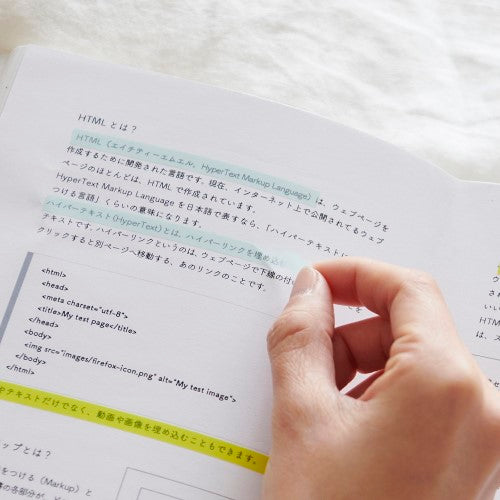 HTML とは？
HTML（エイチティーエムエル、HyperText Markup Language）は、ウェブページを
作成するために開発された言語です。現在、インターネット上で公開されてるウェブ
ページのほとんどは、HTML で作成されています。
HyperText Markup Language を日本語で表すなら、「ハイパーテキストに
つける言語」くらいの意味になります。
ハイパーテキスト(HyperText)とは、ハイパーリンクを埋め込む
キストです。ハイパーリンクというのは、ウェブページで下線の付い
クリックすると別ページへ移動する、あのリンクのことです。
<html>
<head>
<meta charset="utf-8">
<title>My test page</title>
</head>
<body>
<img src="images/firefox-icon.png" alt="My test image">
</body>
</html>
やテキストだけでなく、動画や画像を埋め込むこともできます。
ップとは？
をつける（Markup）と
の各部分が、
ウ
され
いい
HTM
は、ス